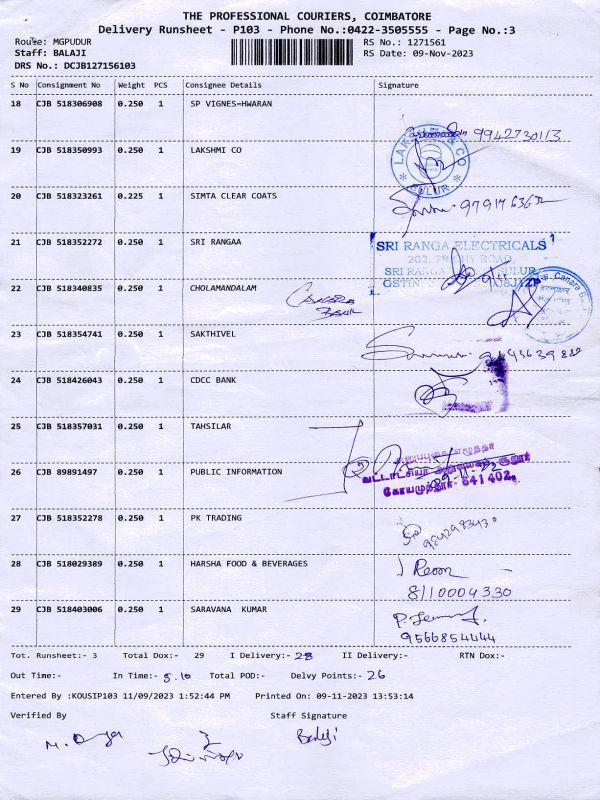 THE PROFESSIONAL COURIERS, COIMBATORE
Delivery Runsheet - P103 - Phone No.:0422-3505555 - Page No.:3
Route: MGPUDUR RS No.: 1271561
Staff: BALAJI RS Date: 09-Nov-2023
DRS No.: DCJB127156103
S No Consignment No Weight PCS Consignee Details Signature
18 CJB 518306908 0.250 1 SP VIGNES=HWARAN
9942730113
19 CJB 518350993 0.250 1 LAKSHMI CO
LAKSHMI & CO
SULUR
20 CJB 518323261 0.225 1 SIMTA CLEAR COATS
21 CJB 518352272 0.250 1 SRI RANGAA
SRI RANGA ELECTRICALS
202, TRICHY ROAD,
SRI RANGA SULUR
GSTIN:
22 CJB 518340835 0.250 1 CHOLAMANDALAM
CANARA
BANK
Canara
23 CJB 518354741 0.250 1 SAKTHIVEL
24 CJB 518426043 0.250 1 CDCC BANK
25 CJB 518357031 0.250 1 TAHSILAR
26 CJB 89891497 0.250 1 PUBLIC INFORMATION
வட்டாட்சியர் அலுவலகம் சூலூர்
கோயமுத்தூர்- 641 402.
27 CJB 518352278 0.250 1 PK TRADING
28 CJB 518029389 0.250 1 HARSHA FOOD & BEVERAGES
8110004330
29 CJB 518403006 0.250 1 SARAVANA KUMAR
9566854444
Tot. Runsheet:- 3 Total Dox:- 29 I Delivery:- 28 II Delivery:- RTN Dox:-
Out Time:- In Time:- 5.10 Total POD:- Delvy Points:- 26
Entered By :KOUSIP103 11/09/2023 1:52:44 PM Printed On: 09-11-2023 13:53:14
Verified By Staff Signature
Balaji